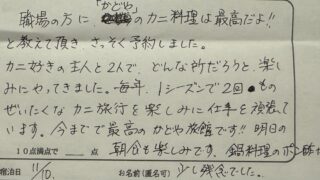 職場の方に、「かどや」のカニ料理は最高だよ!!
と教えて頂き、さっそく予約しました。
カニ好きの主人と2人で、どんな所だろうと、楽し
みにやってきました。毎年、1シーズンで2回ものぜいたくなカニ旅行を楽しみに仕事を頑張って
います。今までで最高のかどや旅館です!!明日の
10点満点で 点 朝食も楽しみです。鍋料理のポン酢が
宿泊日 11/10. お名前(匿名可) 少し残念でした。